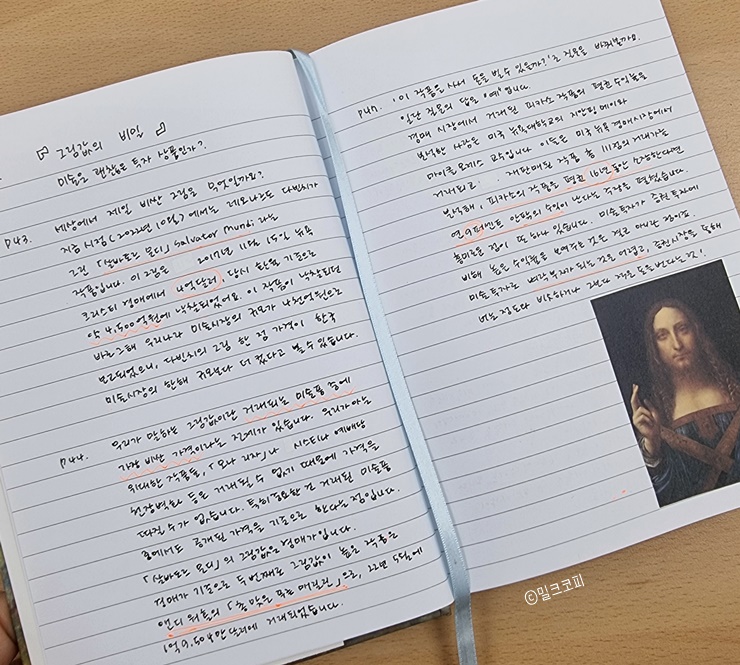 그림값의 비밀
미술은 괜찮은 투자 상품인가?
p43. 세상에서 제일 비싼 그림은 무엇일까요?
지금 시점(2022년 10월)에서는 레오나르도 다빈치가
그린 「살바토르 문디」 Salvator Mundi 라는
작품입니다. 이 그림은 2017년 11월 15일 뉴욕
크리스티 경매에서 4억달러, 당시 한율 기준으로
약 4,500억원에 낙찰되었어요. 이 작품이 낙찰되던
바로 그해 우리나라 미술시장의 규모가 나천억원으로
보고되었으니, 다빈치의 그림 한 점 가격이 한국
미술시장의 한해 규모보다 더 컸다고 볼 수 있습니다.
p44. 우리가 말하는 그림값이란 거래되는 미술품 중에
가장 비싼 가격이라는 전제가 있습니다. 우리가 아는
위대한 작품들, 「모나 리자」나 시스티나 예배당
천장벽화 등은 거래될 수 없기 때문에 가격을
따질 수가 없습니다. 특히 중요한 건 거래된 미술품
중에서도 공개된 가격을 기준으로 한다는 점입니다.
「살바토르 문디」의 그림값은 경매가입니다.
경매가 기준으로 두 번째로 그림값이 높은 작품은
앤디 워홀의 「총 맞은 푹른 매릴린」으로, 22년 5월에
1억 9,504만 달러에 거래되었습니다.
p47. '이 작품을 사서 돈을 벌 수 있을까?'로 질문을 바꿔볼까요.
일단 질문의 답은 "예"입니다.
경매 시장에서 거래된 피카소 작품의 평균 수익률을
분석한 사람은 미국 뉴욕대학교의 지안핑 메이와
마이클 모제스 교수입니다. 이들은 미국 뉴욕 경매시장에서
거래되고 재판매된 작품 총 111점의 거래가를
분석해, 피카소의 작품을 평균 16년 동안 소장한다면
연 9퍼센트 안팎의 수익이 난다는 주장을 펼쳤습니다.
흥미로운 점이 또 하나 있습니다. 미술 투자가 증권 투자에
비해 높은 수익률을 보여주는 것은 결코 아니란 점이죠.
미술 투자로 벼락부자가 되는 것은 어렵고, 증권시장을 통해
버는 정도와 비슷하거나 그보다 적은 돈을 번다는 것!
©밀크코피